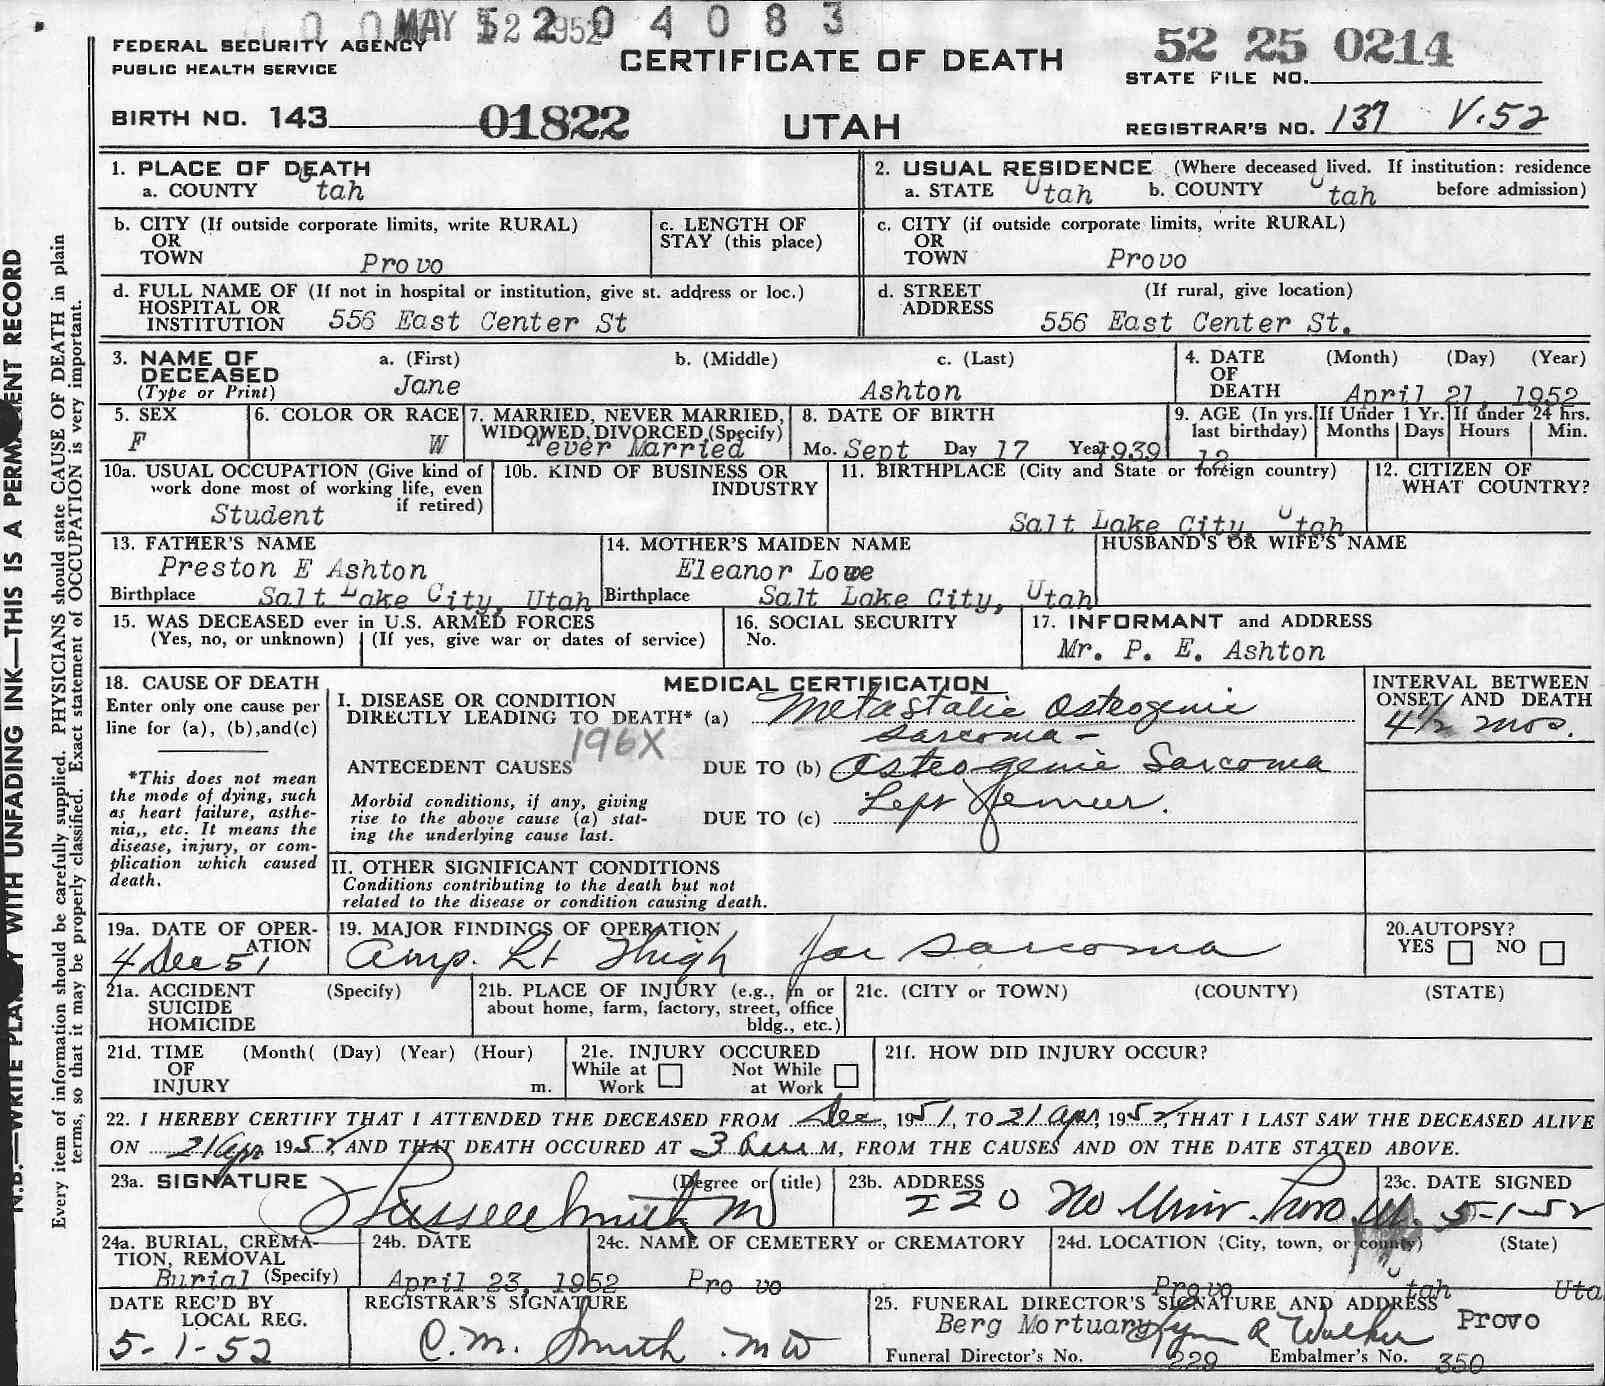 MAY 12 1952
5 2 0 4 0 8 3
FEDERAL SECURITY AGENCY
PUBLIC HEALTH SERVICE
CERTIFICATE OF DEATH
52 25 0214
STATE FILE NO.
BIRTH NO. 143 01822
UTAH
REGISTRAR'S NO. 137 V.52
N.B.—WRITE PLAINLY WITH UNFADING INK—THIS IS A PERMANENT RECORD
Every item of information should be carefully supplied. PHYSICIANS should state CAUSE OF DEATH in plain
terms, so that it may be properly classified. Exact statement of OCCUPATION is very important.
1. PLACE OF DEATH
a. COUNTY Utah
2. USUAL RESIDENCE (Where deceased lived. If institution: residence
a. STATE Utah b. COUNTY Utah before admission)
b. CITY (If outside corporate limits, write RURAL)
OR
TOWN Provo
c. LENGTH OF
STAY (this place)
c. CITY (if outside corporate limits, write RURAL)
OR
TOWN Provo
d. FULL NAME OF (If not in hospital or institution, give st. address or loc.)
HOSPITAL OR
INSTITUTION 556 East Center St
d. STREET (If rural, give location)
ADDRESS
556 East Center St.
3. NAME OF a. (First) b. (Middle) c. (Last)
DECEASED
(Type or Print) Jane Ashton
4. DATE (Month) (Day) (Year)
OF
DEATH April 21, 1952
5. SEX
F
6. COLOR OR RACE
W
7. MARRIED, NEVER MARRIED,
WIDOWED, DIVORCED (Specify)
Never Married
8. DATE OF BIRTH
Mo. Sept Day 17 Year 1939
9. AGE (In yrs.
last birthday)
12
If Under 1 Yr.
Months Days
If under 24 hrs.
Hours Min.
10a. USUAL OCCUPATION (Give kind of
work done most of working life, even
if retired)
Student
10b. KIND OF BUSINESS OR
INDUSTRY
11. BIRTHPLACE (City and State or foreign country)
Salt Lake City, Utah
12. CITIZEN OF
WHAT COUNTRY?
13. FATHER'S NAME
Preston E Ashton
Birthplace Salt Lake City, Utah
14. MOTHER'S MAIDEN NAME
Eleanor Lowe
Birthplace Salt Lake City, Utah
HUSBAND'S OR WIFE'S NAME
15. WAS DECEASED ever in U.S. ARMED FORCES
(Yes, no, or unknown) (If yes, give war or dates of service)
16. SOCIAL SECURITY
No.
17. INFORMANT and ADDRESS
Mr. P. E. Ashton
18. CAUSE OF DEATH
Enter only one cause per
line for (a), (b),and(c)
*This does not mean
the mode of dying, such
as heart failure, asthe-
nia,, etc. It means the
disease, injury, or com-
plication which caused
death.
MEDICAL CERTIFICATION
I. DISEASE OR CONDITION
DIRECTLY LEADING TO DEATH* (a) Metastatic Osteogenic
sarcoma -
196X
ANTECEDENT CAUSES DUE TO (b) Osteogenic Sarcoma
Left femur.
Morbid conditions, if any, giving
rise to the above cause (a) stat-
ing the underlying cause last.
DUE TO (c)
INTERVAL BETWEEN
ONSET AND DEATH
4½ mos.
II. OTHER SIGNIFICANT CONDITIONS
Conditions contributing to the death but not
related to the disease or condition causing death.
19a. DATE OF OPER-
ATION
4 Dec 51
19. MAJOR FINDINGS OF OPERATION
Amp. Lt Thigh for sarcoma
20.AUTOPSY?
YES NO
21a. ACCIDENT (Specify)
SUICIDE
HOMICIDE
21b. PLACE OF INJURY (e.g., in or
about home, farm, factory, street, office
bldg., etc.)
21c. (CITY or TOWN) (COUNTY) (STATE)
21d. TIME (Month( (Day) (Year) (Hour)
OF
INJURY m.
21e. INJURY OCCURED
While at Not While
Work at Work
21f. HOW DID INJURY OCCUR?
22. I HEREBY CERTIFY THAT I ATTENDED THE DECEASED FROM Dec, 1951, TO 21 Apr, 1952, THAT I LAST SAW THE DECEASED ALIVE
ON 21 Apr 1952, AND THAT DEATH OCCURED AT 3 M, FROM THE CAUSES AND ON THE DATE STATED ABOVE.
23a. SIGNATURE (Degree or title)
Russell Smith MD
23b. ADDRESS
220 No Univ. Provo, Ut.
23c. DATE SIGNED
5-1-52
24a. BURIAL, CREMA-
TION, REMOVAL
Burial (Specify)
24b. DATE
April 23, 1952
24c. NAME OF CEMETERY or CREMATORY
Provo
24d. LOCATION (City, town, or county) (State)
Provo Utah Uta
DATE REC'D BY
LOCAL REG.
5-1-52
REGISTRAR'S SIGNATURE
C.M. Smith MD
25. FUNERAL DIRECTOR'S SIGNATURE AND ADDRESS
Berg Mortuary Lynn R Walker Provo
Funeral Director's No. 229 Embalmer's No. 350